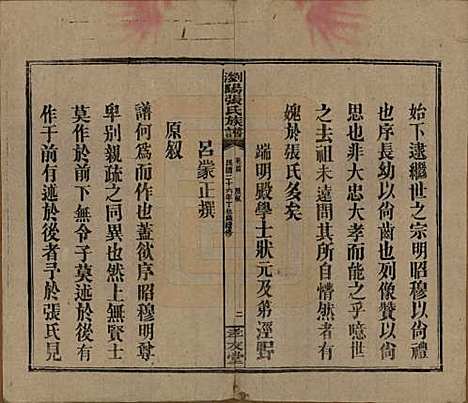 始下逮繼世之宗明昭穆以尚禮
也序長幼以尚齒也列像贊以尚
親也非大忠大孝而能之乎噫世
之去祖未遠問其所自懵然者有
媿於張氏多矣
端明殿學士狀元及第涇野
瀏陽張氏族譜
卷首
原敘
民國二十六年丁丑
二
孝友堂
呂蒙正撰
原敘
譜何為而作也蓋欲序昭穆明尊
卑別親疏之同異也然上無賢士
莫作於前下無令子莫述於後有
作于前有述於後者予於張氏見